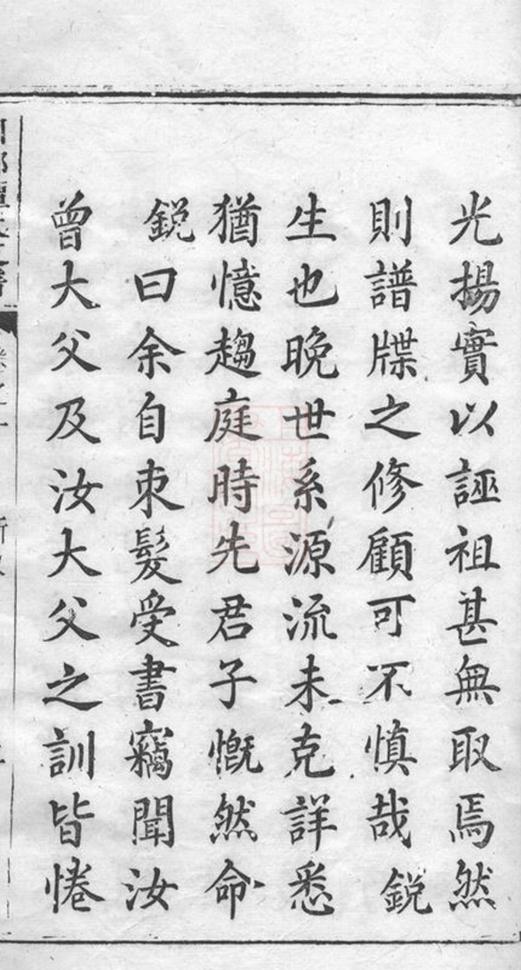 光揚實以誣祖甚無取焉然
則譜牒之修顧可不慎哉鋭
生也晚世系源流未克詳悉
猶憶趨庭時先君子慨然命
鋭曰余自朿髮受書竊聞汝
曾大父及汝大父之訓皆惓